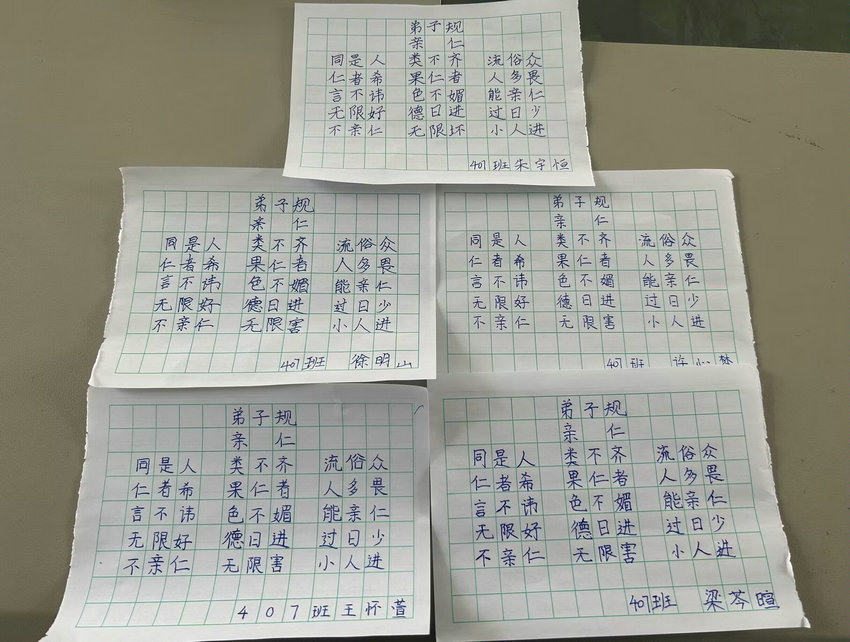 弟子规
亲 仁
同是人 类不齐 流俗众
仁者希 果仁者 人多畏
言不讳 色不媚 能亲仁
无限好 德日进 过日少
不亲仁 无限坏 小人进
407班朱宇恒
弟子规
亲 仁
同是人 类不齐 流俗众
仁者希 果仁者 人多畏
言不讳 色不媚 能亲仁
无限好 德日进 过日少
不亲仁 无限害 小人进
407班 徐明山
弟子规
亲 仁
同是人 类不齐 流俗众
仁者希 果仁者 人多畏
言不讳 色不媚 能亲仁
无限好 德日进 过日少
不亲仁 无限害 小人进
407班 许心
弟子规
亲 仁
同是人 类不齐 流俗众
仁者希 果仁者 人多畏
言不讳 色不媚 能亲仁
无限好 德日进 过日少
不亲仁 无限害 小人进
407班王怀萱
弟子规
亲 仁
同是人 类不齐 流俗众
仁者希 果仁者 人多畏
言不讳 色不媚 能亲仁
无限好 德日进 过日少
不亲仁 无限害 小人进
407班 梁芩暄